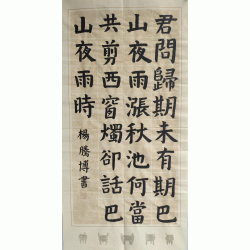 君問歸期未有期巴
山夜雨漲秋池何當
共剪西窗燭卻話巴
山夜雨時
楊騰博書